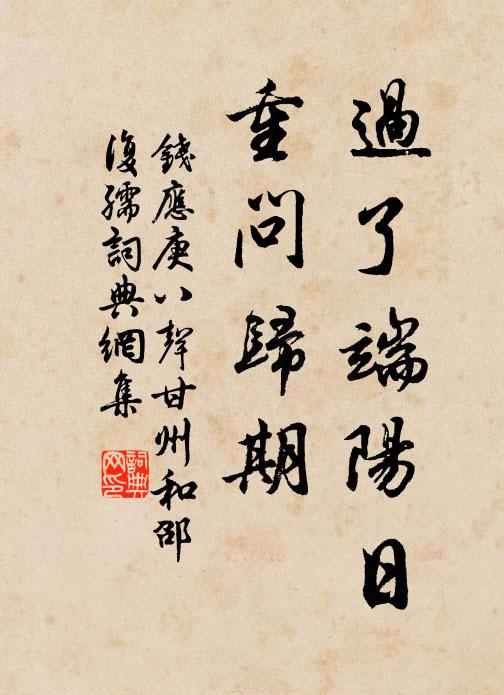 過了端陽日
重問歸期
錢應庚八聲甘州和邵
復孺詞典網集
詞典
网印